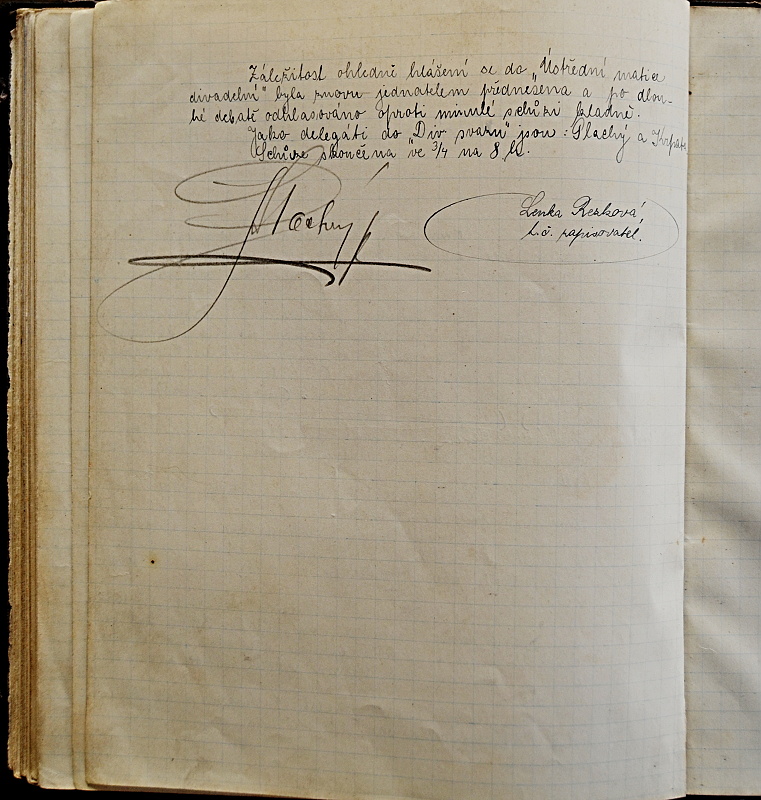 Záležitost ohledně hlášení se do „Ústřední matice
divadelní" byla znovu jednatelem přednesena a po dlou-
hé debatě odhlasováno oproti minulé schůzi kladně.
Jako delegáti do "Div svazu" jsou: Plachý a
Schůze skončena ve 3/4 na 8 h.
Plachý
Lenka Rezková,
t.č. zapisovatel.